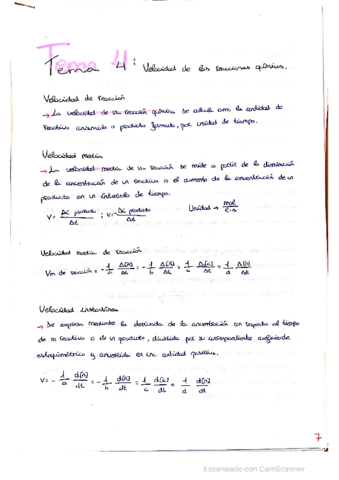 Tema 4: Velocidad de las reacciones químicas.
Velocidad de reacción
→ La velocidad de una reacción química se calcula como la cantidad de
reactivo consumido o producto formado, por unidad de tiempo.
Velocidad media
→ La velocidad media de una reacción se mide a partir de la disminución
de la concentración de un reactivo o el aumento de la concentración de un
producto en un intervalo de tiempo.
V= ΔC producto / Δt ; V=- ΔC / Δt Unidad → mol / L·s
Velocidad media de reacción
Vm de reacción = - 1/a Δ[A]/Δt = - 1/b Δ[B]/Δt = 1/c Δ[C]/Δt = 1/d Δ[D]/Δt
Velocidad instantánea
→ Se expresa mediante la derivada de la concentración con respecto al tiempo
de un reactivo o de un producto, dividida por su correspondiente coeficiente
estequiométrico y convertida en una cantidad positiva.
V= - 1/a d[A]/dt = - 1/b d[B]/dt = 1/c d[C]/dt = 1/d d[D]/dt
7
Escaneado con CamScanner